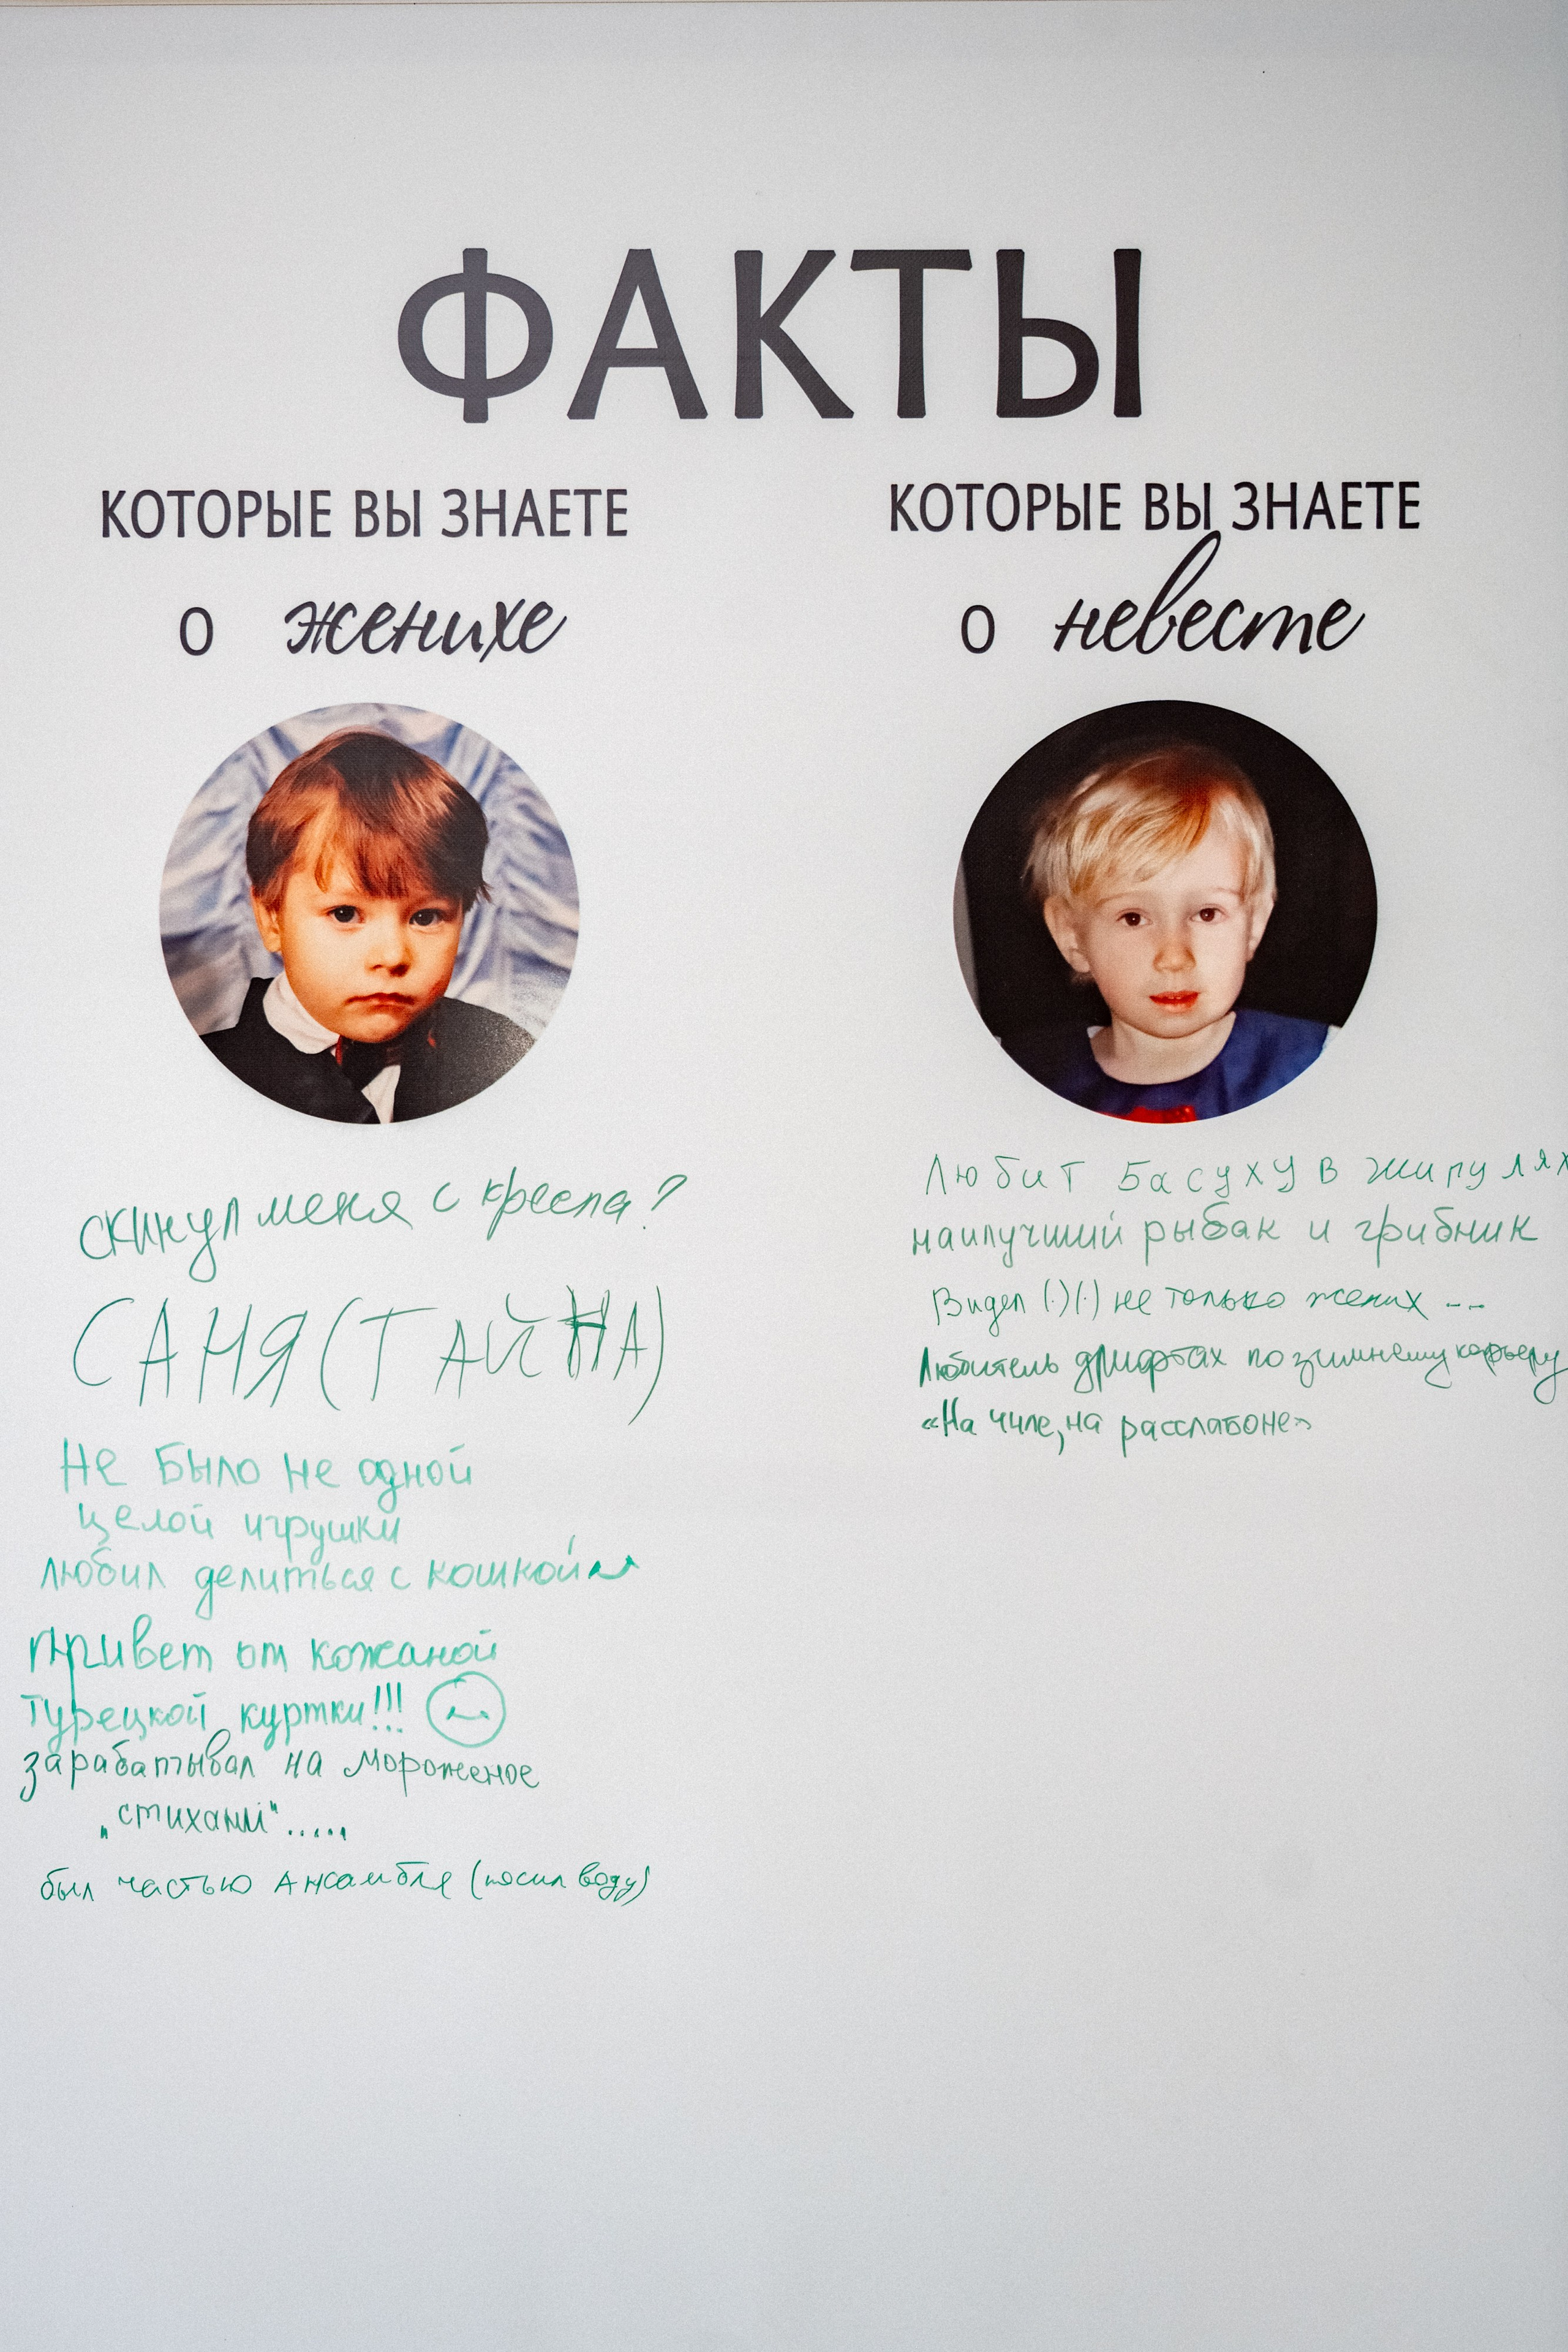 ФАКТЫ
КОТОРЫЕ ВЫ ЗНАЕТЕ
о женихе
скинул меня с кресла?
САНЯ (ТАЙНА)
Не было не одной
целой игрушки
любил делиться с кошкой
Привет от кожаной
турецкой куртки!!!
зарабатывал на мороженое
„стихами".....
был частью Ансамбля (носил воду)
КОТОРЫЕ ВЫ ЗНАЕТЕ
о невесте
Любит Басуху в жигулях
наилучший рыбак и грибник
Видел (.)(.) не только жених --
Любитель дрифтах по зимнему карьеру
«На чиле, на расслабоне»